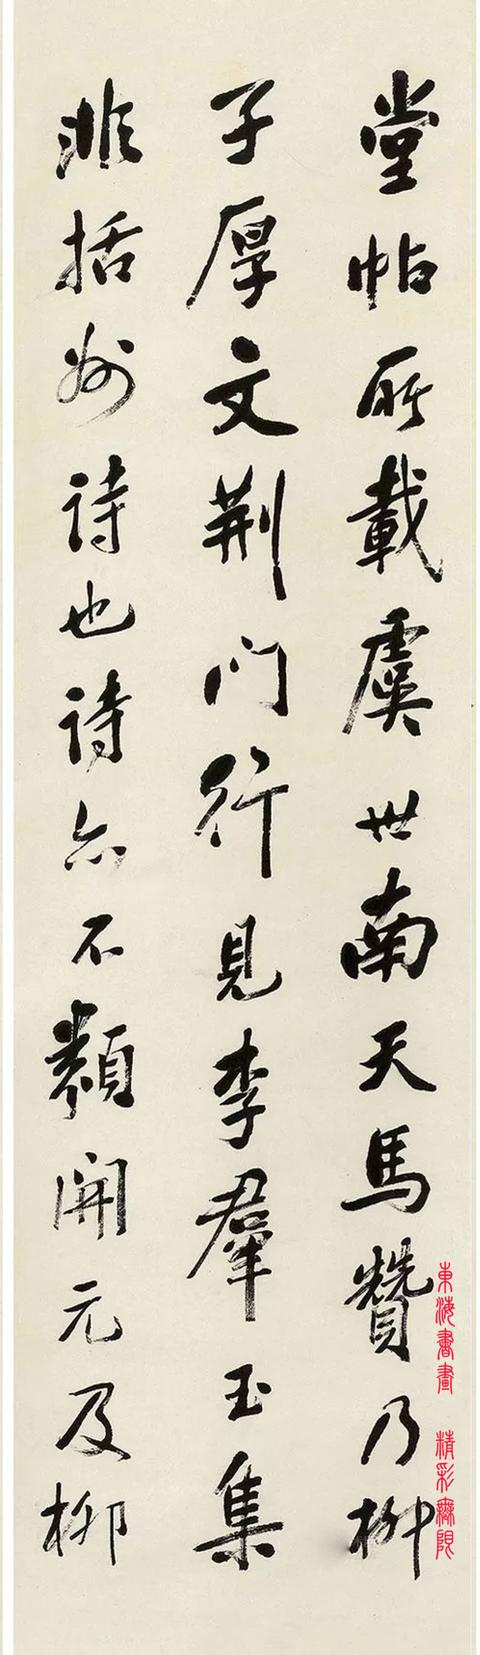 堂帖所載虞世南天馬贊乃柳
子厚文荆门行見李羣玉集
非括州詩也詩亦不類開元及柳
東海書畫 精彩無限